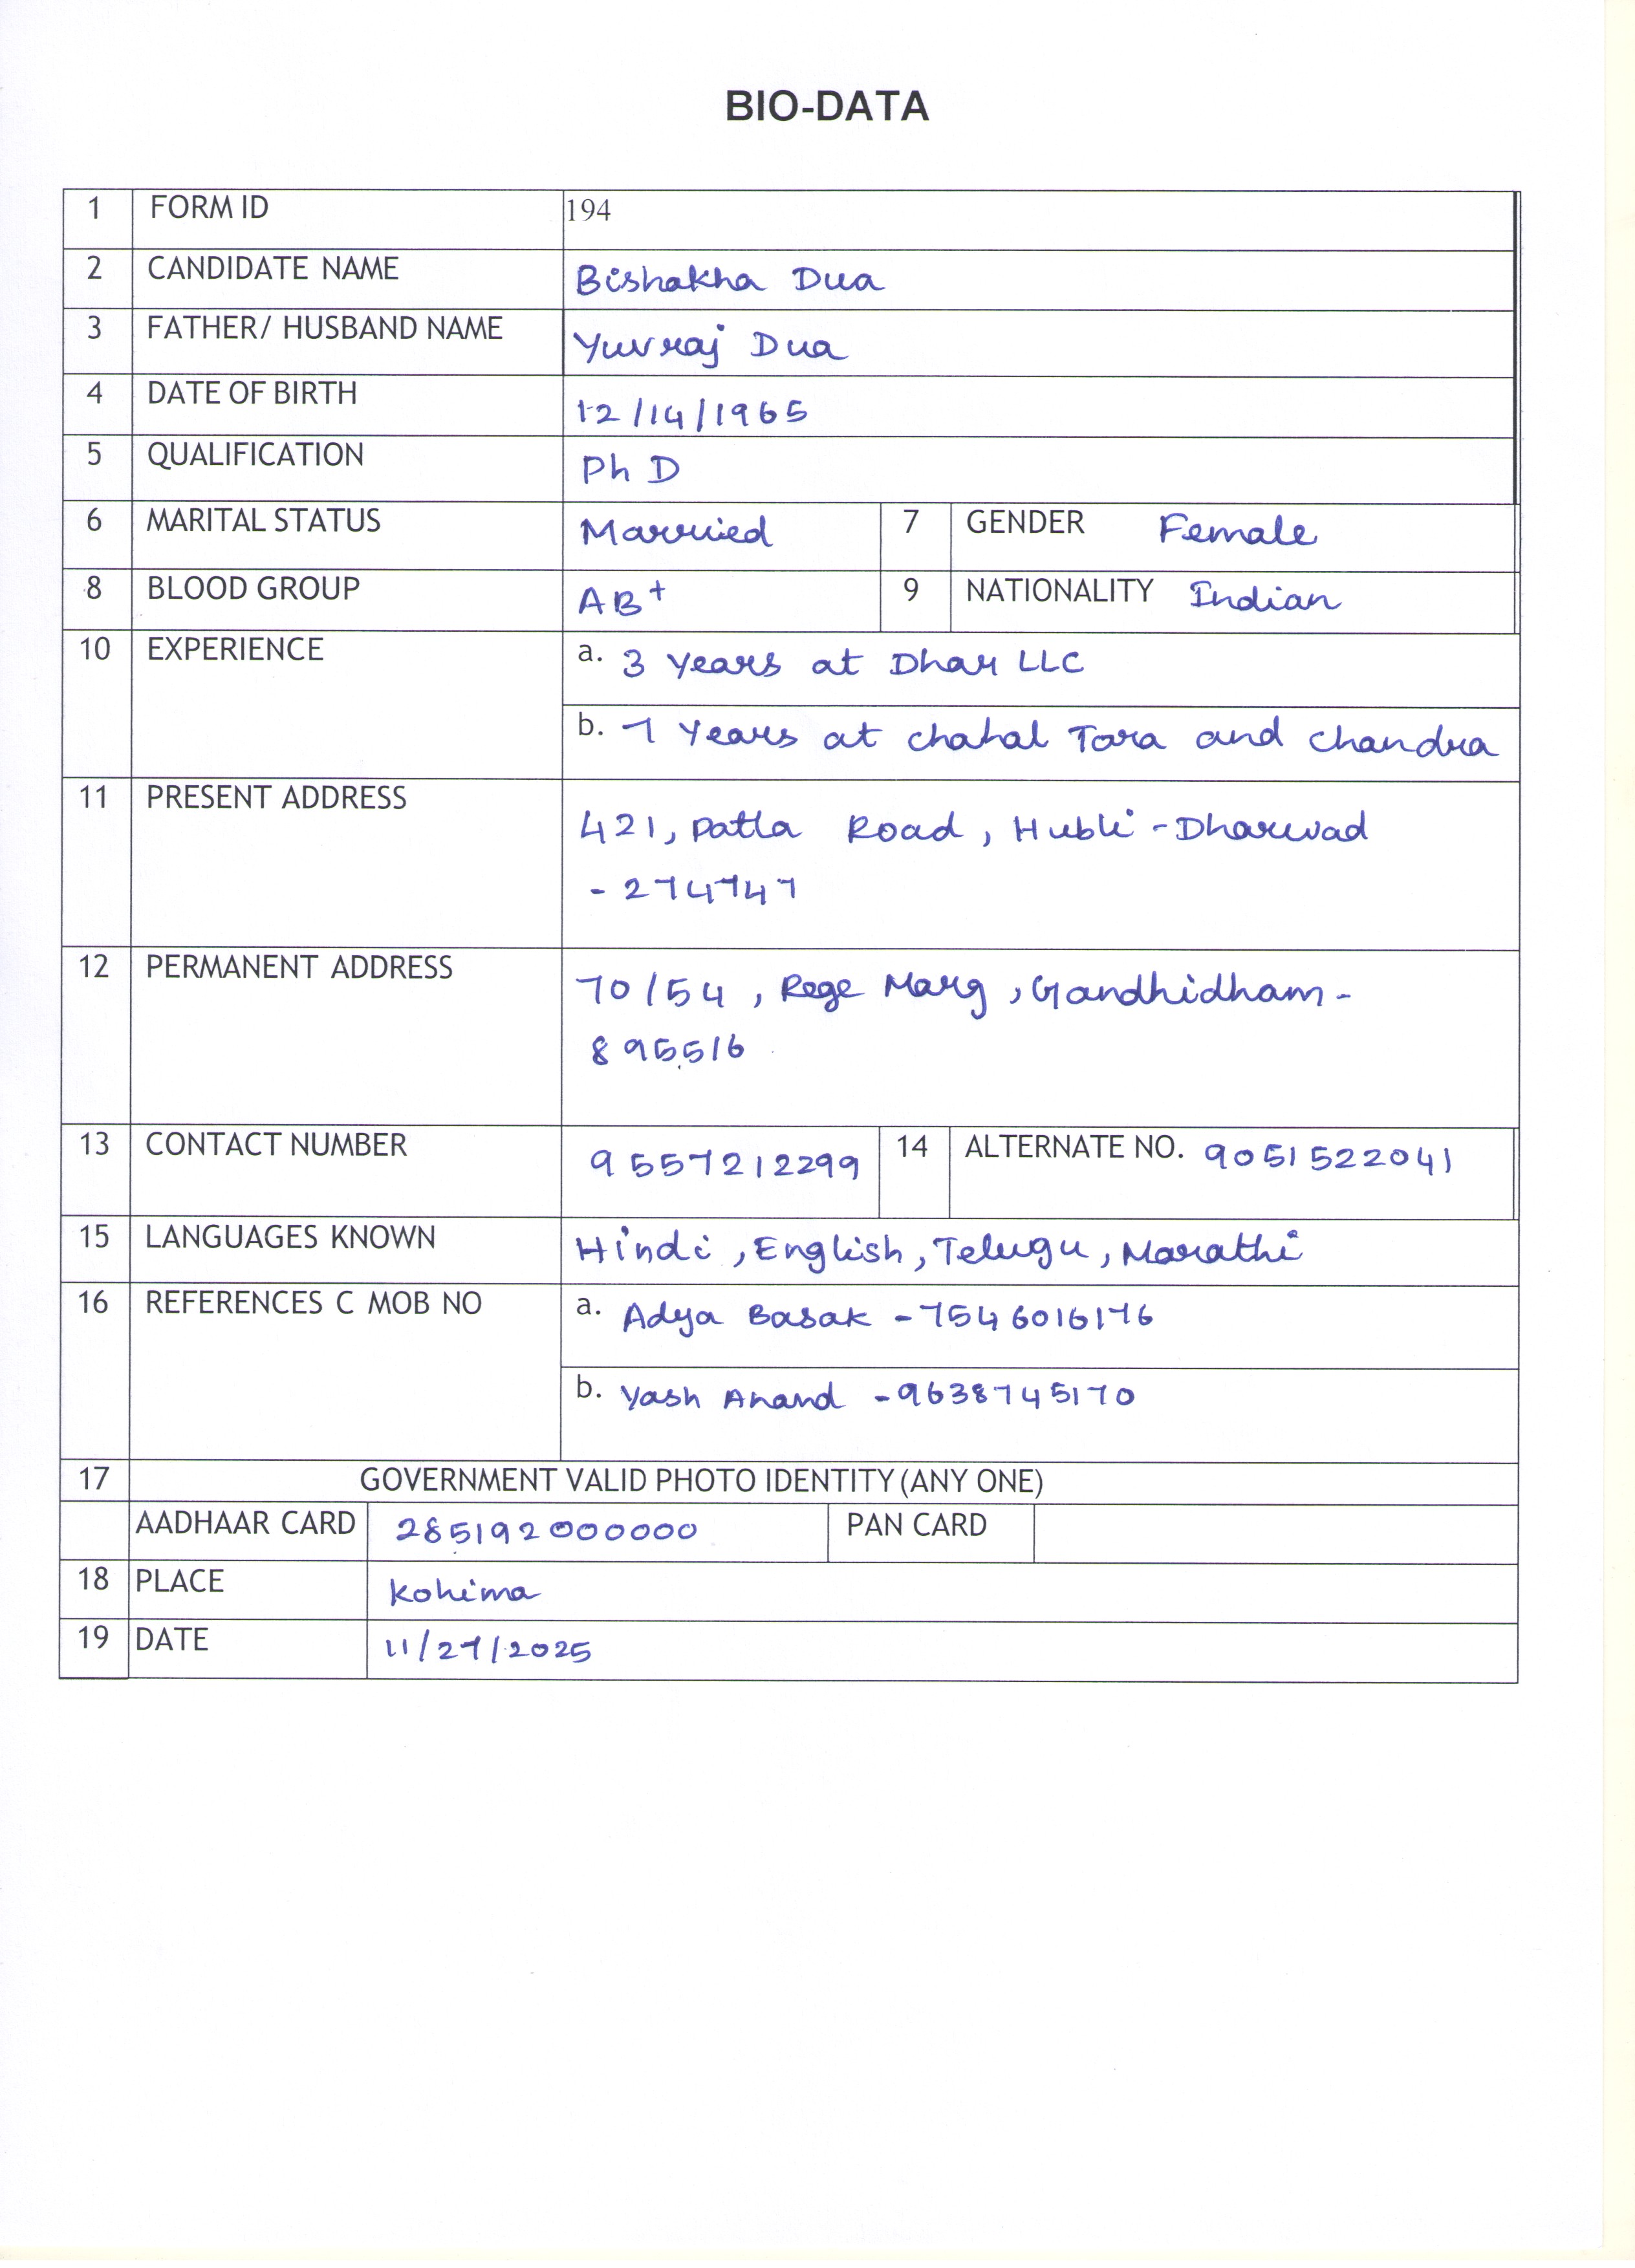 BIO-DATA
1 FORM ID 194
2 CANDIDATE NAME Bishakha Dua
3 FATHER/ HUSBAND NAME Yuvraj Dua
4 DATE OF BIRTH 12/14/1965
5 QUALIFICATION Ph D
6 MARITAL STATUS Married 7 GENDER Female
8 BLOOD GROUP AB+ 9 NATIONALITY Indian
10 EXPERIENCE a. 3 Years at Dhar LLC
b. 7 Years at Chahal Tara and Chandra
11 PRESENT ADDRESS 421, Patla Road, Hubli-Dharwad
- 274747
12 PERMANENT ADDRESS 70/54, Rege Marg, Gandhidham-
895516
13 CONTACT NUMBER 9557212299 14 ALTERNATE NO. 9051522041
15 LANGUAGES KNOWN Hindi, English, Telugu, Marathi
16 REFERENCES C MOB NO a. Adya Basak - 7546016176
b. Yash Anand - 9638745170
17 GOVERNMENT VALID PHOTO IDENTITY (ANY ONE)
AADHAAR CARD 285192000000 PAN CARD
18 PLACE Kohima
19 DATE 11/27/2025